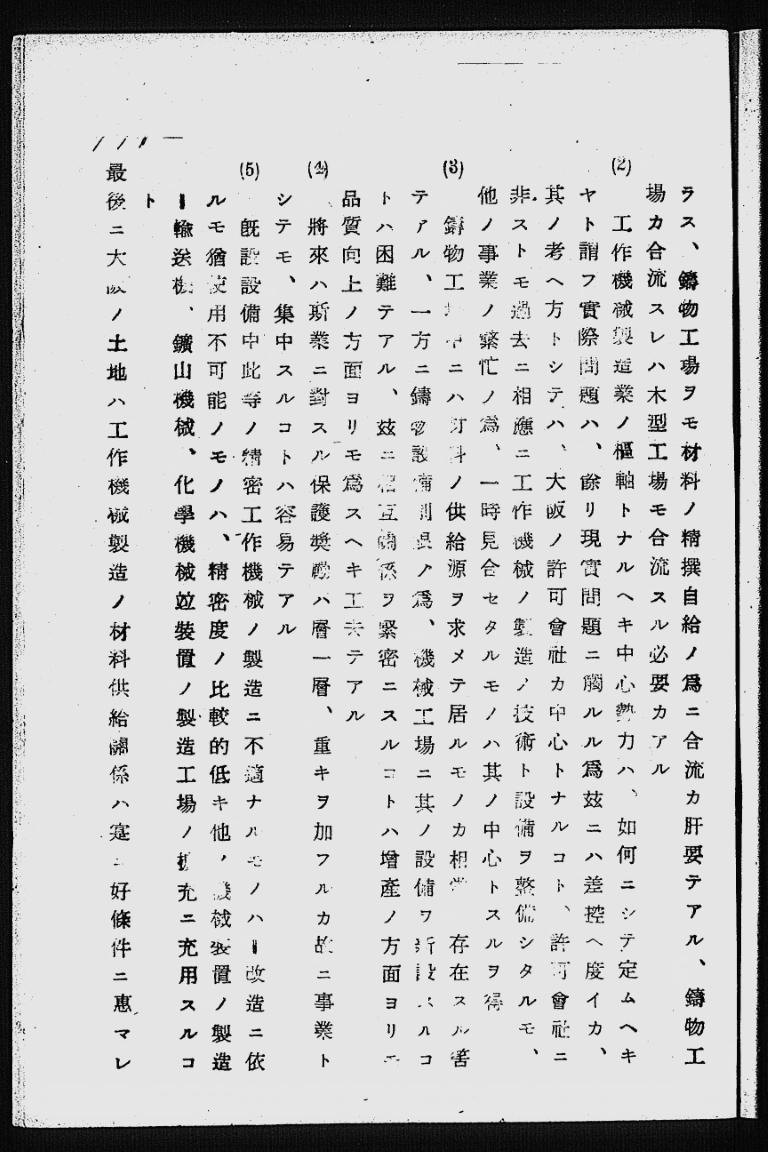 ラス、鑄物工場ヲモ材料ノ精撰自給ノ爲ニ合流カ肝要テアル、鑄物工
場カ合流スレハ木型工場モ合流スル必要カアル
(2) 工作機械製造業ノ樞軸トナルヘキ中心勢力ハ、如何ニシテ定ムヘキ
ヤト謂フ實際問題ハ、餘リ現實問題ニ觸ルル爲玆ニハ差控ヘ度イカ、
其ノ考ヘ方トシテハ、大阪ノ許可會社カ中心トナルコト、許可會社ニ
非ストモ過去ニ相應ニ工作機械ノ製造ノ技術ト設備ヲ整備シタルモ、
他ノ事業ノ繁忙ノ爲、一時見合セタルモノハ其ノ中心トスルヲ得
(3) 鑄物工場中ニハ材料ノ供給源ヲ求メテ居ルモノカ相當 存在スル筈
テアル、一方ニ鑄物設備制限ノ爲、機械工場ニ其ノ設備ヲ新設スルコ
トハ困難テアル、玆ニ相互關係ヲ緊密ニスルコトハ增產ノ方面ヨリモ
品質向上ノ方面ヨリモ爲スヘキ工夫テアル
(4) 將來ハ斯業ニ對スル保護獎勵ハ層一層、重キヲ加フルカ故ニ事業ト
シテモ、集中スルコトハ容易テアル
(5) 旣設設備中此等ノ精密工作機械ノ製造ニ不適ナルモノハー改造ニ依
ルモ猶使用不可能ノモノハ、精密度ノ比較的低キ他ノ機械裝置ノ製造
ー輸送機、鑛山機械、化學機械竝裝置ノ製造工場ノ擴充ニ充用スルコ
ト
最後ニ大阪ノ土地ハ工作機械製造ノ材料供給關係ハ寔ニ好條件ニ惠マレ